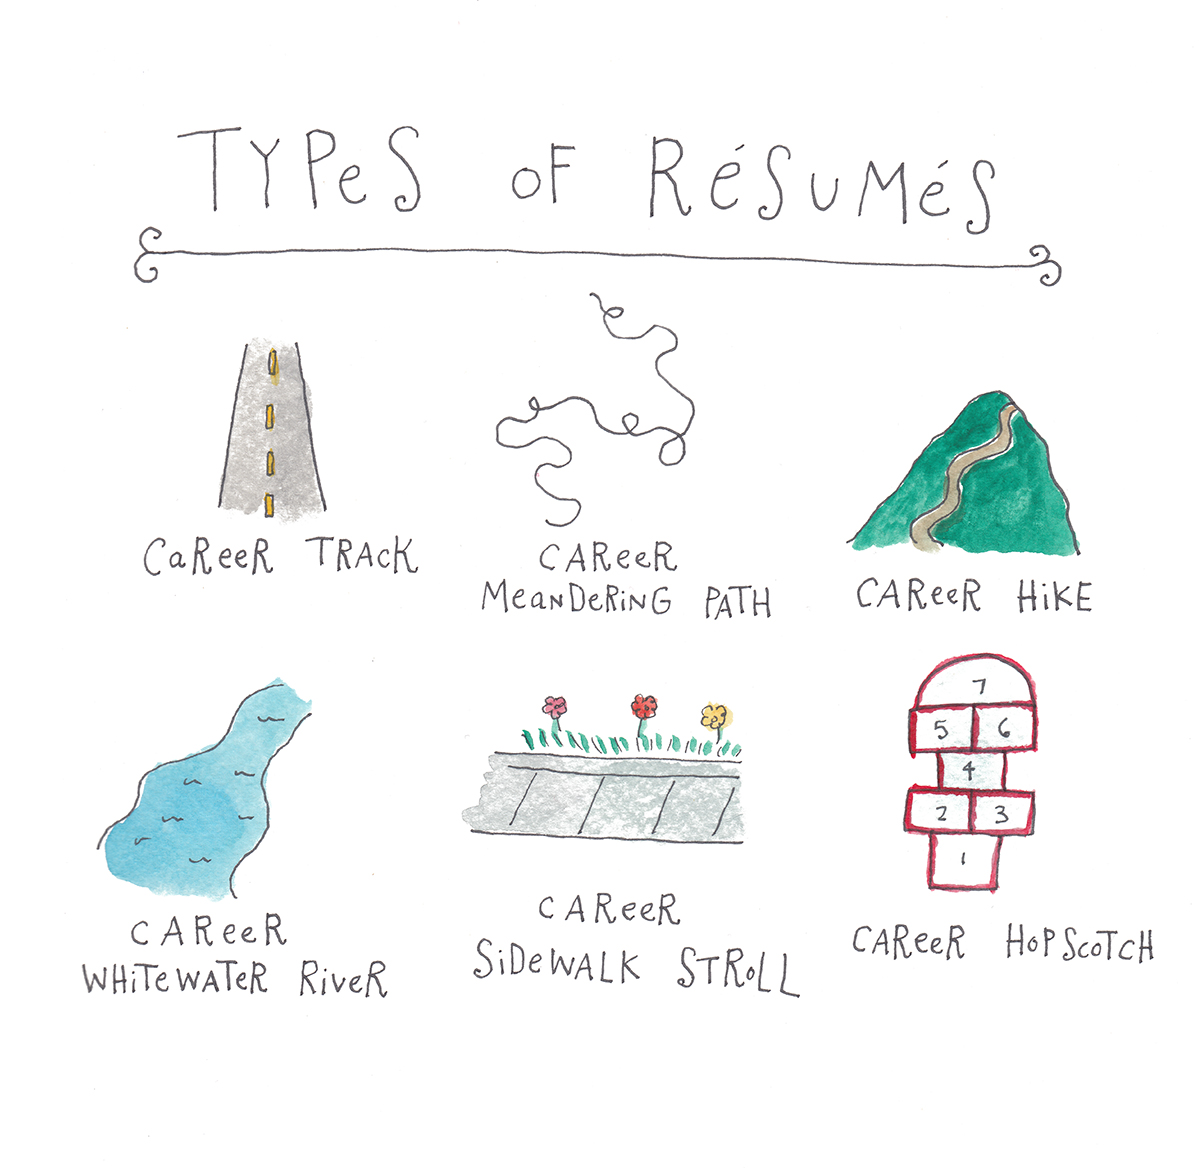 TYPeS oF RéSuMéS
CaReeR TRAcK
CAReeR
MeaNDeRiNG PATH
CAReeR HiKE
CAReeR
WHiTeWATeR RiveR
CAReeR
SiDeWALK STRoLL
7
5 6
4
2 3
1
CAReeR HoPScoTCH